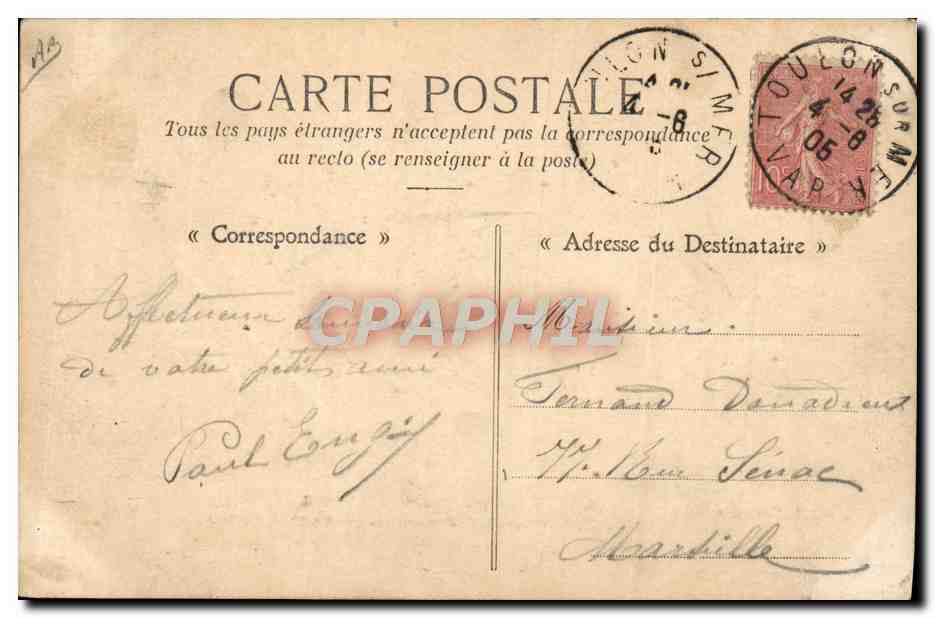 AB
CARTE POSTALE
Tous les pays étrangers n'acceptent pas la correspondance
au recto (se renseigner à la poste)
ULON S/ MER
4 -8
TOULON SUR MER
14 25
4 -8
05
VAR
10
« Correspondance »
Affectueux
de votre petit ami
Paul
« Adresse du Destinataire »
Monsieur
Fernand Donadieu
77. Rue Sénac
Marseille
CPAPHIL